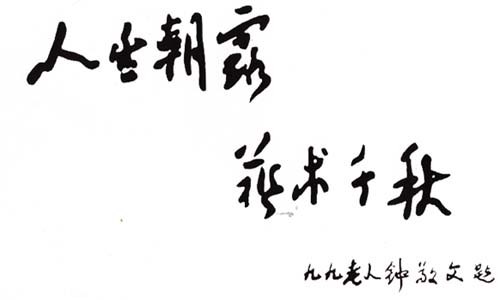 人生朝露
藝术千秋
九九老人钟敬文题